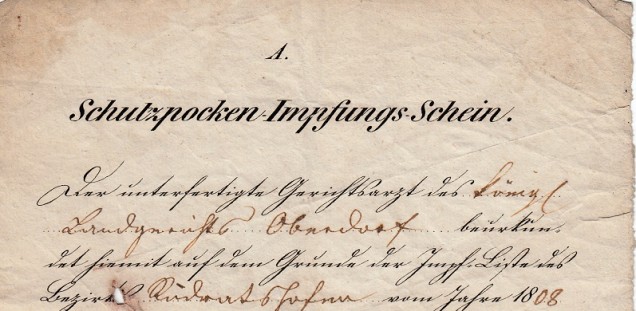 A.
Schutzpocken-Impfungs-Schein.
Der unterfertigte Gerichtsarzt des Königl.
Landgerichts Oberdorf beurkun,
det hiemit auf dem Grunde der Impf-Liste des
Bezirks Rudratshofen vom Jahre 1808